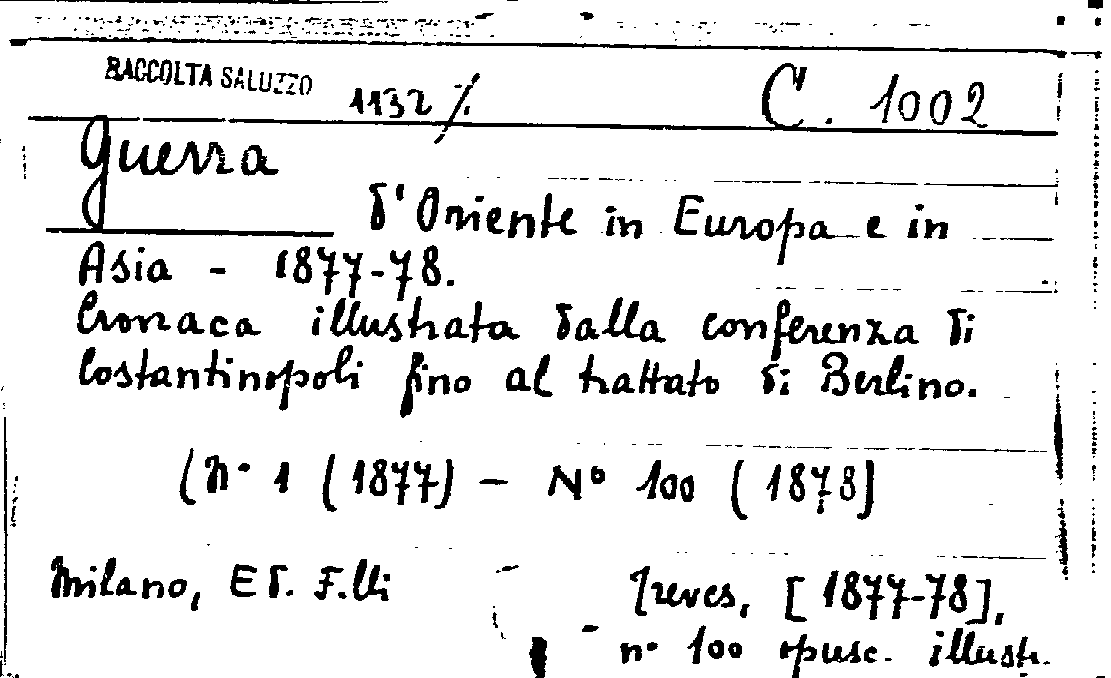 RACCOLTA SALUZZO 1132 /. C. 1002
Guerra
d'Oriente in Europa e in
Asia - 1877-78.
Cronaca illustrata dalla conferenza di
Costantinopoli fino al trattato di Berlino.
(N. 1 (1877) - N° 100 (1878)
Milano, Ed. F.lli Treves, [1877-78],
n° 100 opusc. illustr.